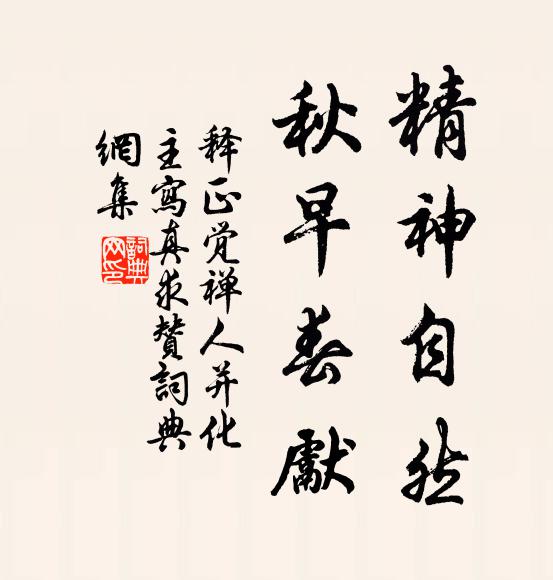 精神自然
秋早春獻
释正觉禅人并化
主寫真求贊詞典
網集
詞典網印